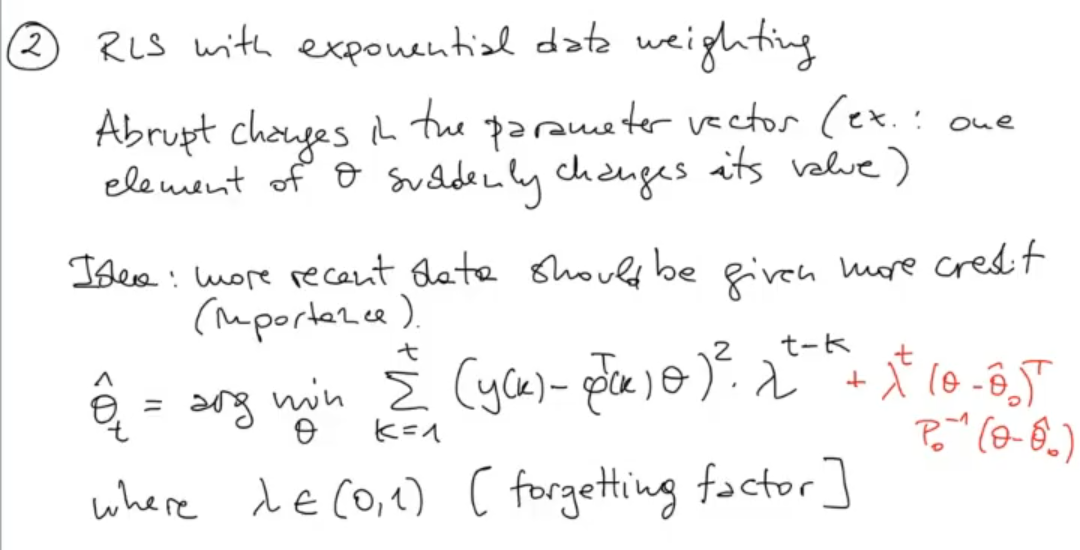 ② RLS with exponential data weighting
Abrupt changes in the parameter vector (ex.: one
element of θ suddenly changes its value)
Idea: more recent data should be given more credit
(importance).
θ̂_t = arg min_θ Σ_{k=1}^{t} (y(k) - φ^T(k)θ)^2 · λ^{t-k} + λ^t (θ - θ̂_0)^T
P_0^{-1} (θ - θ̂_0)
where λ ∈ (0,1) [forgetting factor]